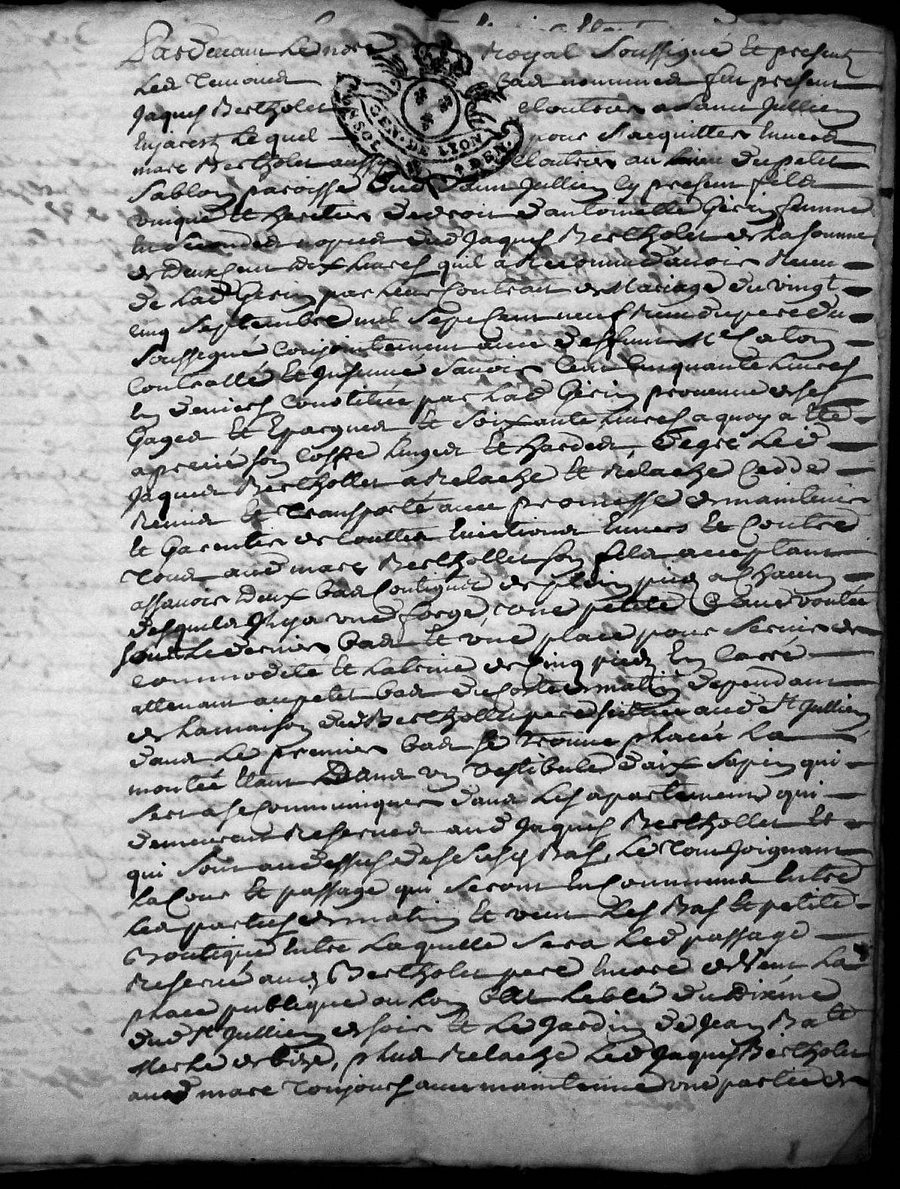 Pardevant le no.re Royal soussigné et presents
Les Temoins bas nommes fut present
Jaques Bertholet cloutier a Saint Jullien
En jarest Lequel pour s'acquitter Envers
marc Bertholet aussy cloutier au Lieu du petit
Sablon paroisse dud Saint Jullien Ly present fils
unique et heritier de droit d'antoinette Gerin femme
En secondes nopces dud Jaques Bertholet de la somme
de deux cent dix Livres quil a Reconnu avoir Receu
de Lad Gerin par Leur Contrait de Mariage du vingt
cinq Septembre mil Sept Cent neuf Receu du pere du
soussigné conjointement avec deffunt Me
Controllé et Insinué Savoir Cent Cinquante Livres
En deniers constituée par lad Gerin provenue de ses
Gages et Epargnes et Soixante Livres a quoy a été
aprecié son coffre Linges et hardes, de gré Led
Jaques Berthollet a Relaché et Relache Cedde
Remis et Transporté avec promesse de maintenir
Et Garentir de touttes Evictions Envers et Contre
Tous aud marc Berthollet son fils acceptant
assavoir deux bas contigus de plein pied a chacun
desquels Il y a une forge, une petite Cave voutée
sous Le dernier bas et une place pour servir de
commodité et Latrine de Cinq pieds En carré
attenant au petit bas du costé de matin dependant
de La maison dud Berthollet pere située aud St Jullien
dans Le premier bas se trouve placée La
montée Etant Dans un vestibule d'aix Sapin qui
sera se communiquer dans Les apartements qui
demeurent Reservés aud Jaques Berthollet Et
qui sont au dessus desdits Bas, Le Tout Joignant
La Cour et passage qui seront En commun Entre
Les parties de matin et vent Les Bas et petite
Boutique Entre Laquelle sera Led passage
Reservé aud Bertholet pere Encore de Vent La
place publique ou Lon bat Le blé du Dixme
dud St Jullien de soir et Le Jardin de Jean Bap.te
de bize, plus Relache Led Jaques Bertholet
aud marc Toujours avec maintenue une partie de
GEN. DE LYON